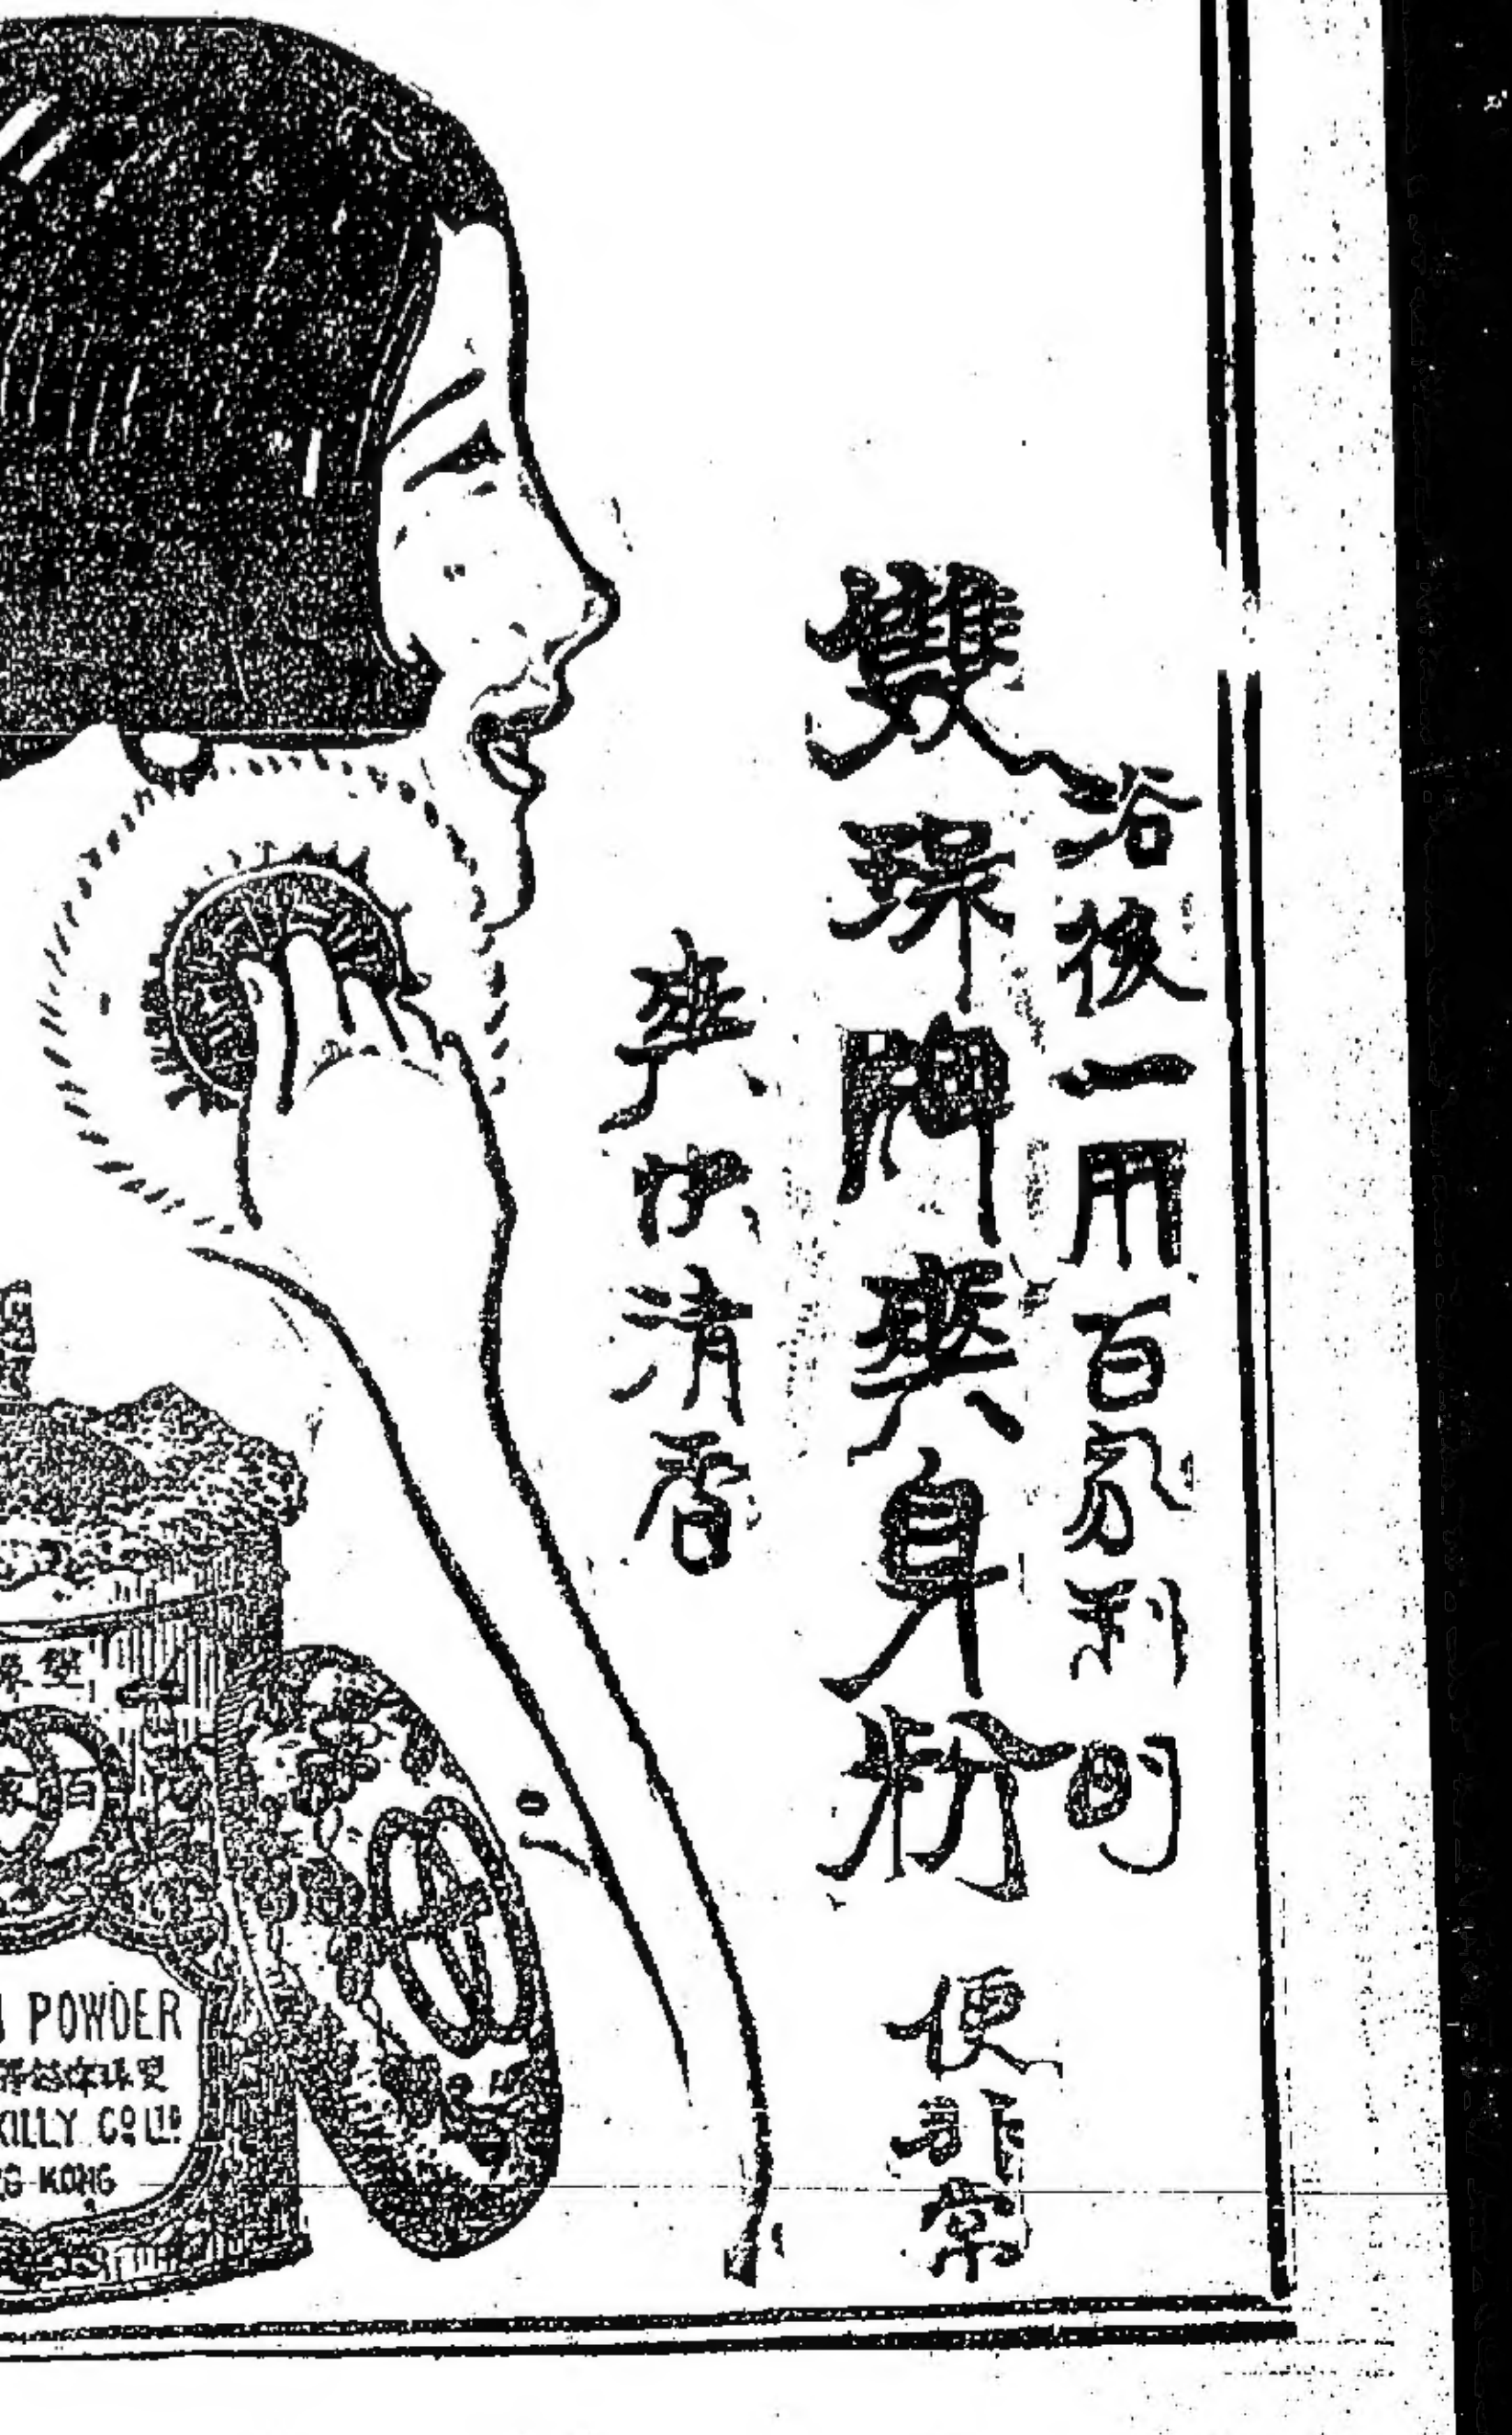 浴後一用百家利的
雙珠牌爽身粉
便非常
爽快清香
雙珠
POWDER
KILLY Cº LTD
G-KONG